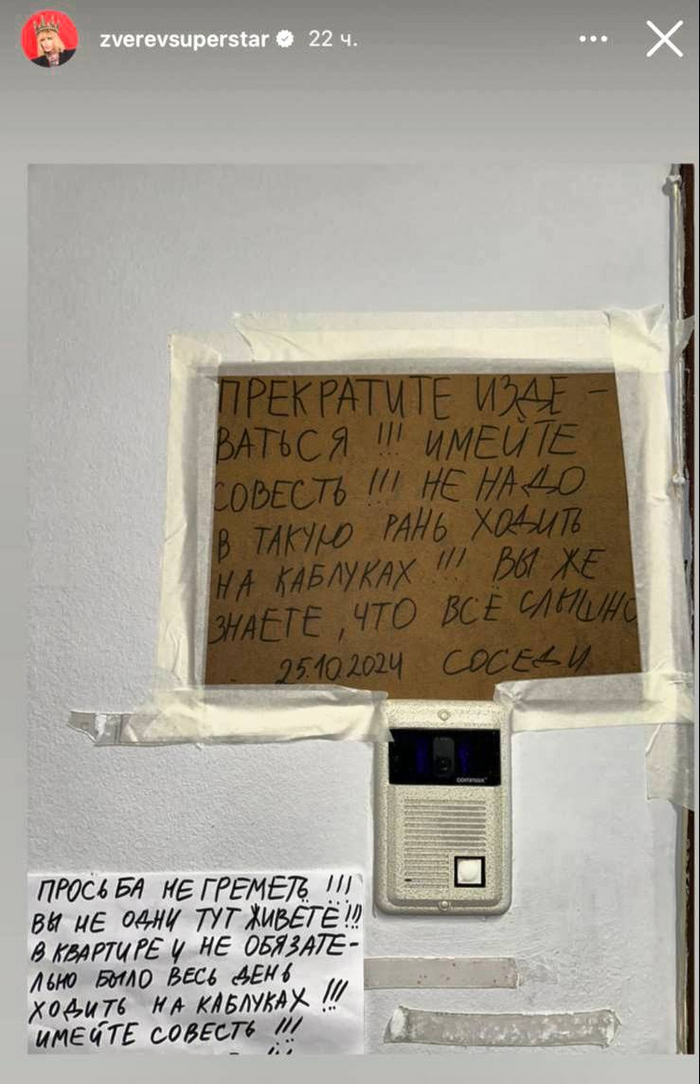 zverevsuperstar 22 ч.
ПРЕКРАТИТЕ ИЗДЕ -
ВАТЬСЯ !!! ИМЕЙТЕ
СОВЕСТЬ !!! НЕ НАДО
В ТАКУЮ РАНЬ ХОДИТЬ
НА КАБЛУКАХ !!! ВЫ ЖЕ
ЗНАЕТЕ , ЧТО ВСЁ СЛЫШНО
25.10.2024 СОСЕДИ
commax
ПРОСЬБА НЕ ГРЕМЕТЬ !!!
ВЫ НЕ ОДНИ ТУТ ЖИВЁТЕ !!!
В КВАРТИРЕ И НЕ ОБЯЗАТЕ-
ЛЬНО БЫЛО ВЕСЬ ДЕНЬ
ХОДИТЬ НА КАБЛУКАХ !!!
ИМЕЙТЕ СОВЕСТЬ !!!